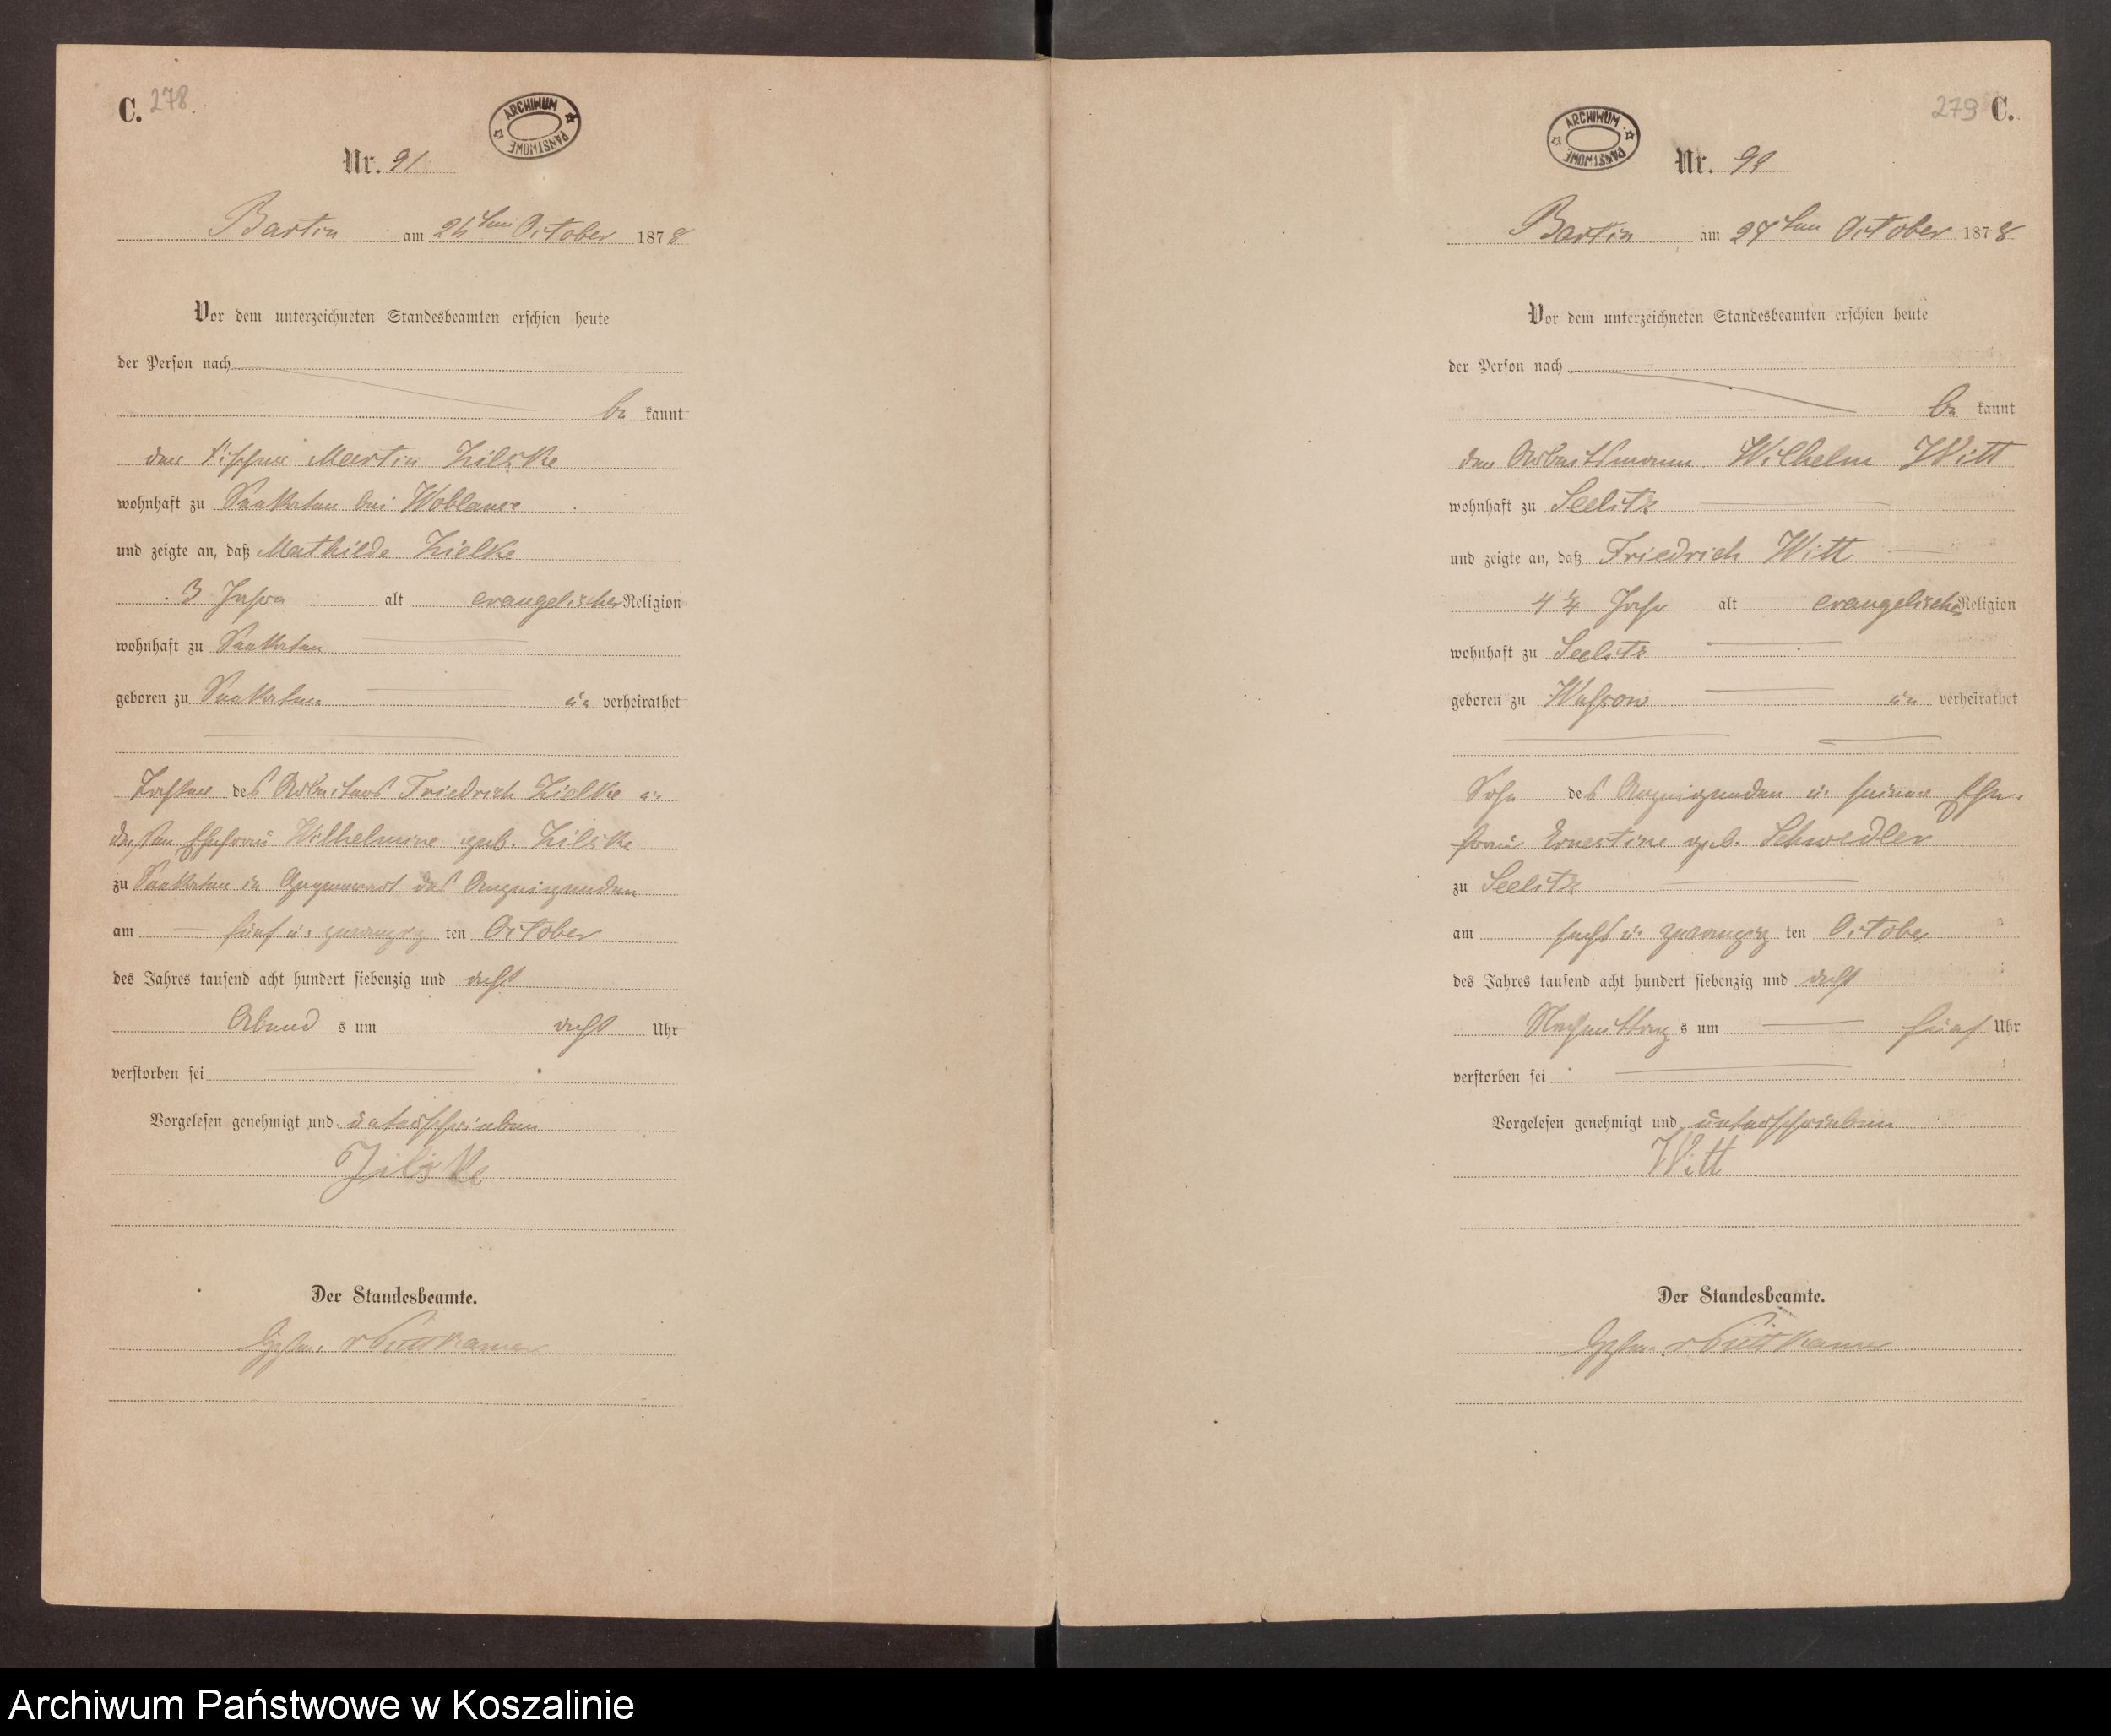 C. 278
ARCHIWUM PAŃSTWOWE
Nr. 91
Bartin am 26ten October 1878
Vor dem unterzeichneten Standesbeamten erschien heute
der Person nach
be kannt
der Fischer Martin Zilske
wohnhaft zu bei Woblanse
und zeigte an, daß Mathilde Zielke
3 Jahre alt evangelischer Religion
wohnhaft zu
geboren zu un verheirathet
Tochter des Arbeiters Friedrich Zielke u.
dessen Ehefrau Wilhelmine geb. Zilske
zu in Gegenwart des Anzeigenden
am fünf u. zwanzig ten October
des Jahres tausend acht hundert siebenzig und acht
Abend s um acht Uhr
verstorben sei
Vorgelesen genehmigt und unterschrieben
Zilske
Der Standesbeamte.
v Puttkamer
279 C.
ARCHIWUM PAŃSTWOWE
Nr. 99
Bartin am 27ten October 1878
Vor dem unterzeichneten Standesbeamten erschien heute
der Person nach
be kannt
der Arbeitsmann Wilhelm Witt
wohnhaft zu Seelitz
und zeigte an, daß Friedrich Witt
4 ¼ Jahr alt evangelischer Religion
wohnhaft zu Seelitz
geboren zu Wussow un verheirathet
Sohn des Anzeigenden u. seiner Ehe-
frau Ernestine geb. Schwedler
zu Seelitz
am sechs u. zwanzig ten October
des Jahres tausend acht hundert siebenzig und acht
Nachmittag s um fünf Uhr
verstorben sei
Vorgelesen genehmigt und unterschrieben
Witt
Der Standesbeamte.
v Puttkamer
Archiwum Państwowe w Koszalinie